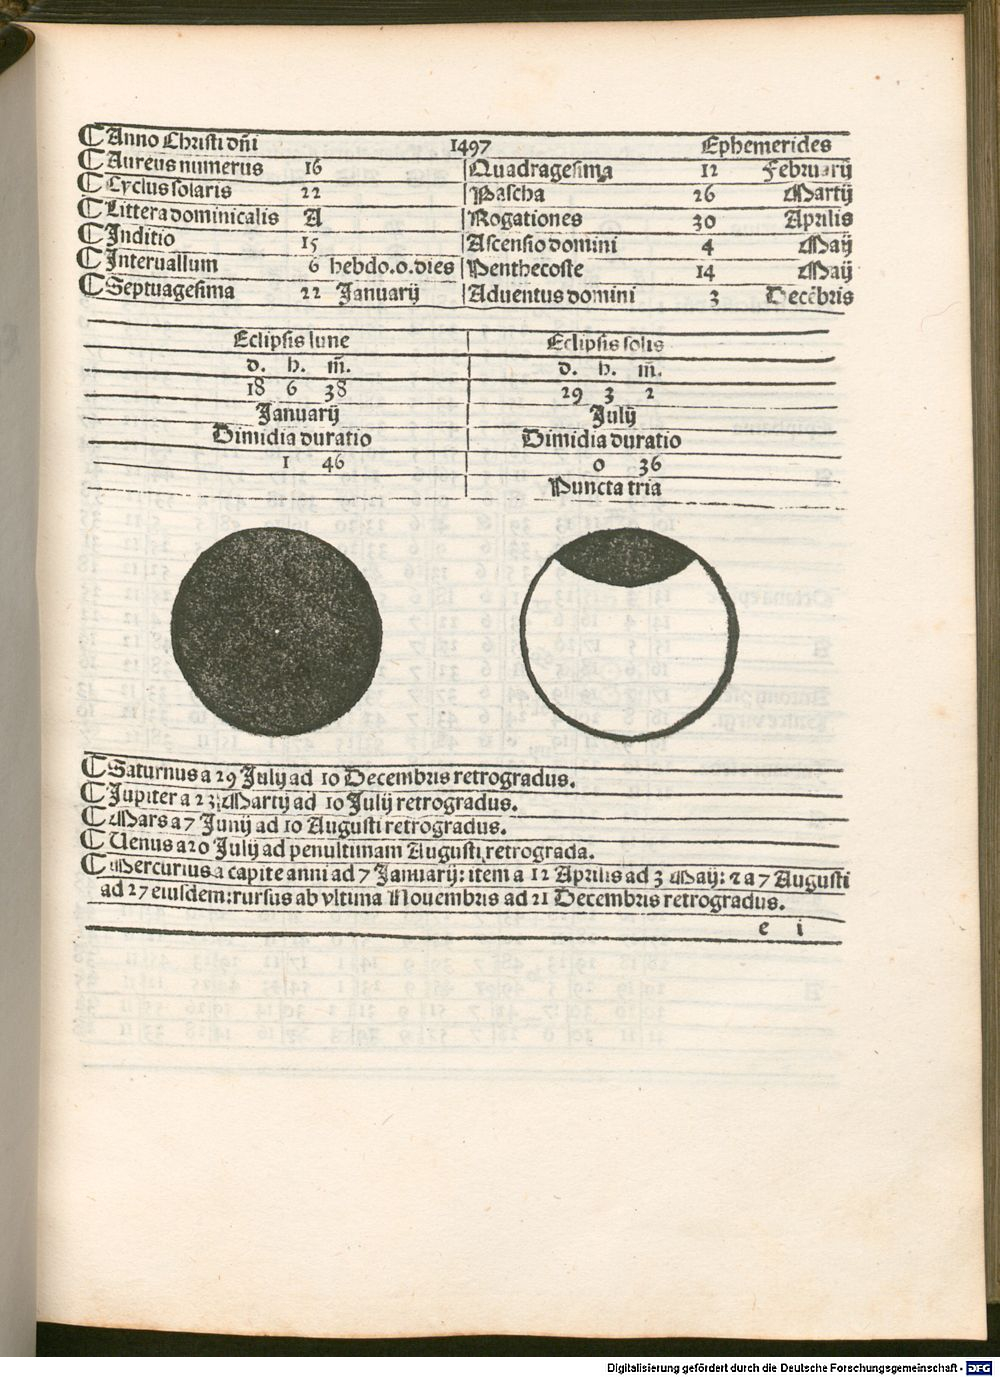 Anno Christi dñi 1497 Ephemerides
Aureus numerus 16 Quadragesima 12 Februarij
Cyclus solaris 22 Pascha 26 Martij
Littera dominicalis A Rogationes 30 Aprilis
Inditio 15 Ascensio domini 4 Maij
Interuallum 6 hebdo.o.dies Penthecoste 14 Maij
Septuagesima 22 Januarij Aduentus domini 3 Decēbris
Eclipsis lune Eclipsis solis
d. h. m̃. d. h. m̃.
18 6 38 29 3 2
Januarij Julij
Dimidia duratio Dimidia duratio
1 46 0 36
Puncta tria
Saturnus a 29 Julij ad 10 Decembris retrogradus.
Jupiter a 23 Martij ad 10 Julij retrogradus.
Mars a 7 Junij ad 10 Augusti retrogradus.
Uenus a 20 Julij ad penultimam Augusti retrograda.
Mercurius a capite anni ad 7 Januarij: item a 12 Aprilis ad 3 Maij: ⁊ a 7 Augusti
ad 27 eiusdem: rursus ab vltima Nouembris ad 21 Decembris retrogradus.
e i
Digitalisierung gefördert durch die Deutsche Forschungsgemeinschaft - DFG